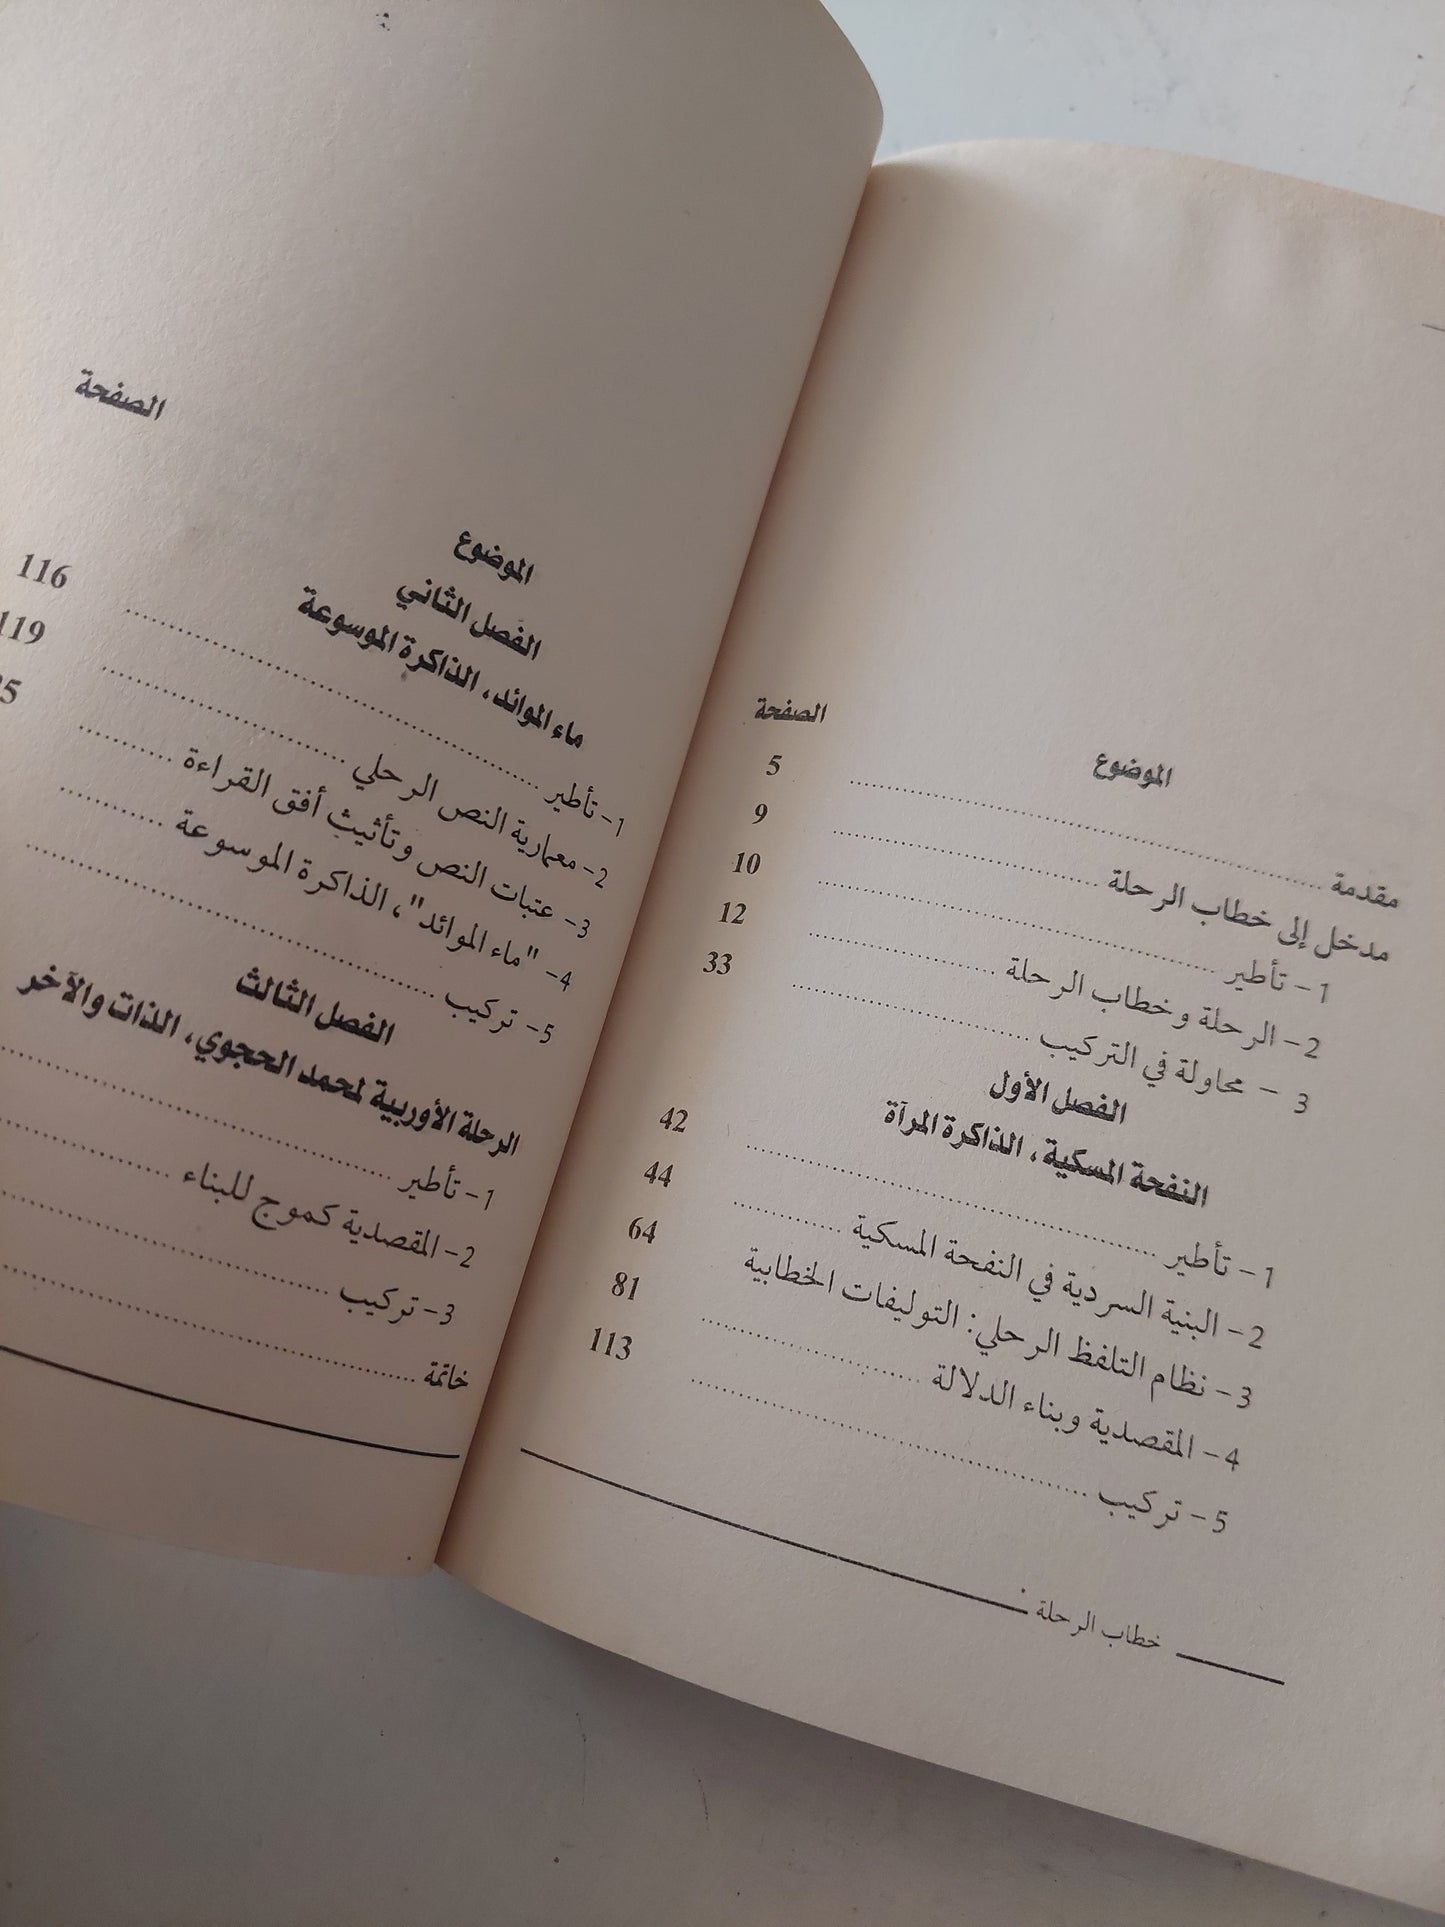 الموضوع الصفحة
مقدمة ........ 5
مدخل إلى خطاب الرحلة ........ 9
1- تأطير ........ 10
2- الرحلة وخطاب الرحلة ........ 12
3 - محاولة في التركيب ........ 33
الفصل الأول
النفحة المسكية، الذاكرة المرآة
1- تأطير ........ 42
2- البنية السردية في النفحة المسكية ........ 44
3- نظام التلفظ الرحلي: التوليفات الخطابية 64
4- المقصدية وبناء الدلالة ........ 81
5- تركيب ........ 113
خطاب الرحلة
الموضوع الصفحة
الفصل الثاني
ماء الموائد، الذاكرة الموسوعة
1- تأطير ........ 116
2- معمارية النص الرحلي ........ 119
3- عتبات النص وتأثيث أفق القراءة ........
4- "ماء الموائد"، الذاكرة الموسوعة ........
5- تركيب ........
الفصل الثالث
الرحلة الأوربية لمحمد الحجوي، الذات والآخر
1- تأطير ........
2- المقصدية كموج للبناء ........
3- تركيب ........
خاتمة ........